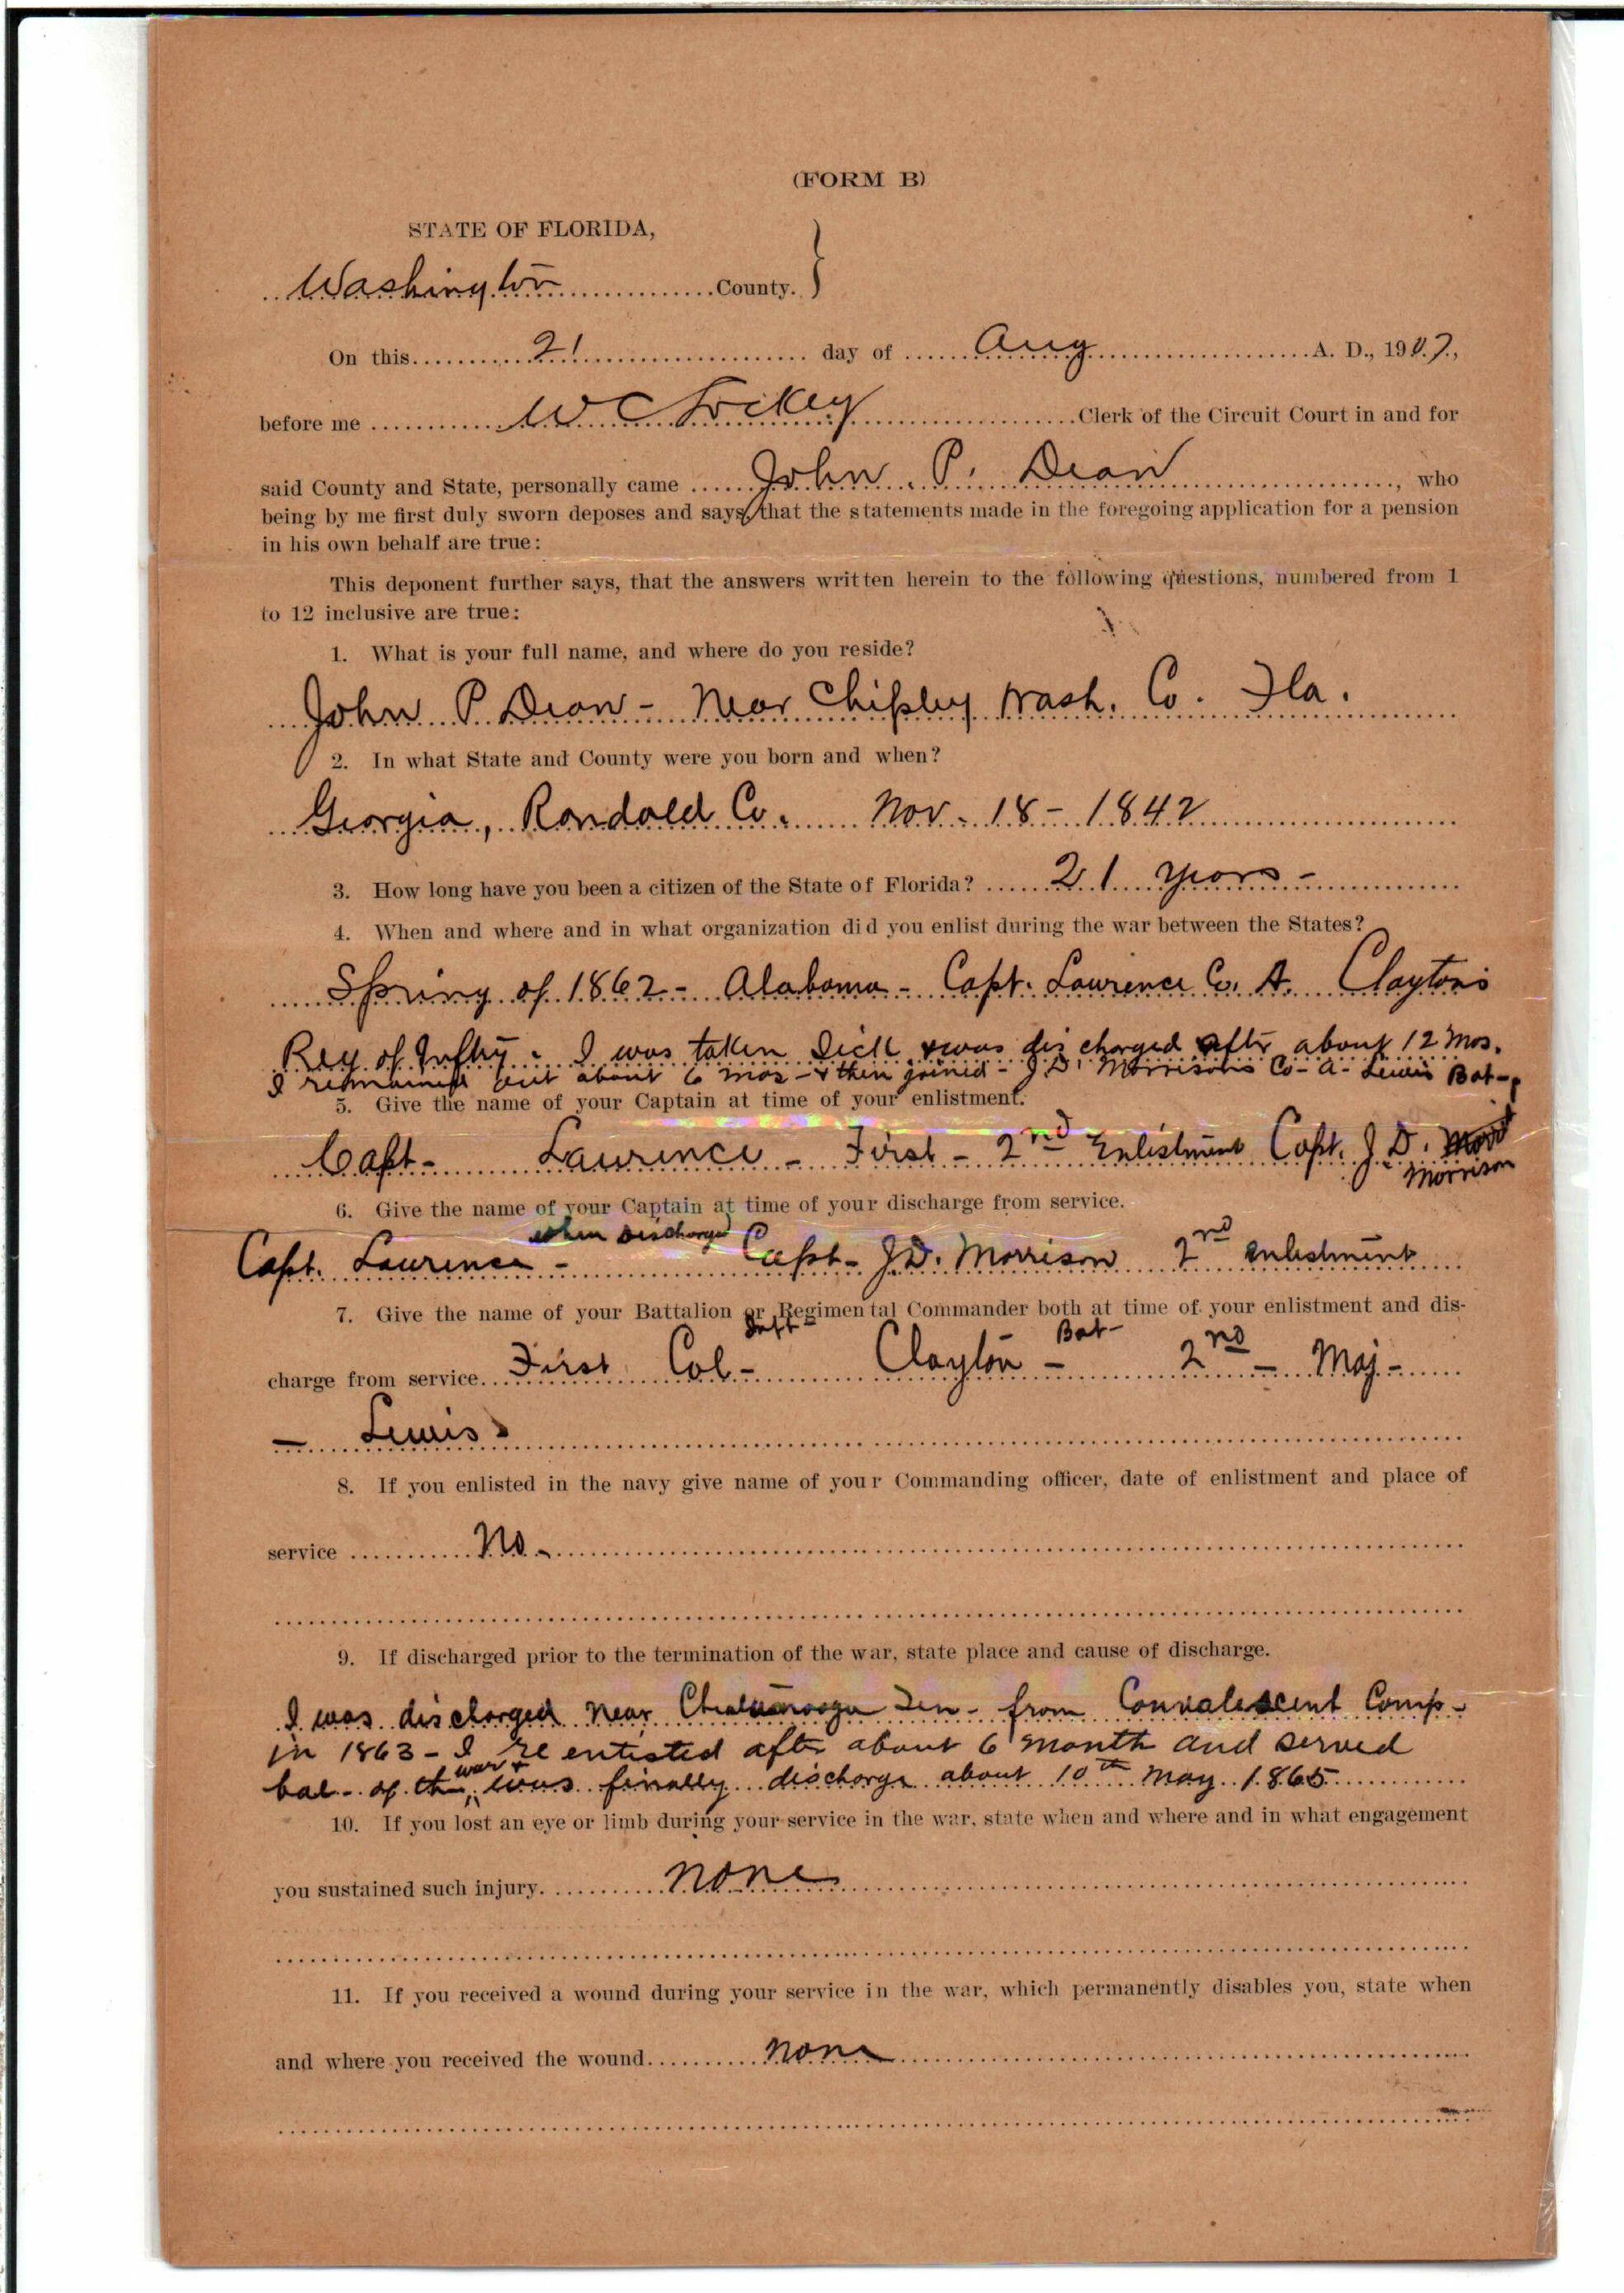 (FORM B)
STATE OF FLORIDA,
Washington County. }
On this 21 day of Aug A. D., 1907.,
before me W C Lockey Clerk of the Circuit Court in and for
said County and State, personally came John P. Dean, who
being by me first duly sworn deposes and says, that the statements made in the foregoing application for a pension
in his own behalf are true:
This deponent further says, that the answers written herein to the following questions, numbered from 1
to 12 inclusive are true:
1. What is your full name, and where do you reside?
John P Dean - Near Chipley Wash. Co. Fla.
2. In what State and County were you born and when?
Georgia, Randold Co. Nov. 18 - 1842
3. How long have you been a citizen of the State of Florida? 21 years -
4. When and where and in what organization did you enlist during the war between the States?
Spring of 1862 - Alabama - Capt. Lawrence Co. A. Claytons
Reg of Inftry. I was taken sick & was discharged after about 12 mos.
I remained out about 6 mos - & then joined - J.D. Morrisons Co - A - Lewis Bat -
5. Give the name of your Captain at time of your enlistment.
Capt - Lawrence - First - 2nd Enlistment Capt. J. D.
Morrison
6. Give the name of your Captain at time of your discharge from service.
when discharged
Capt. Lawrence - Capt - J.D. Morrison 2nd enlistment
7. Give the name of your Battalion or Regimental Commander both at time of your enlistment and dis-
charge from service. First Col - Clayton - Bat - 2nd - Maj -
- Lewis
8. If you enlisted in the navy give name of your Commanding officer, date of enlistment and place of
service No -
9. If discharged prior to the termination of the war, state place and cause of discharge.
I was discharged near Chattanooga Ten - from Convalescent Camp -
in 1863 - I re entisted after about 6 month and served
bal - of the war & was finally discharge about 10th May 1865
10. If you lost an eye or limb during your service in the war, state when and where and in what engagement
you sustained such injury. None
11. If you received a wound during your service in the war, which permanently disables you, state when
and where you received the wound. None